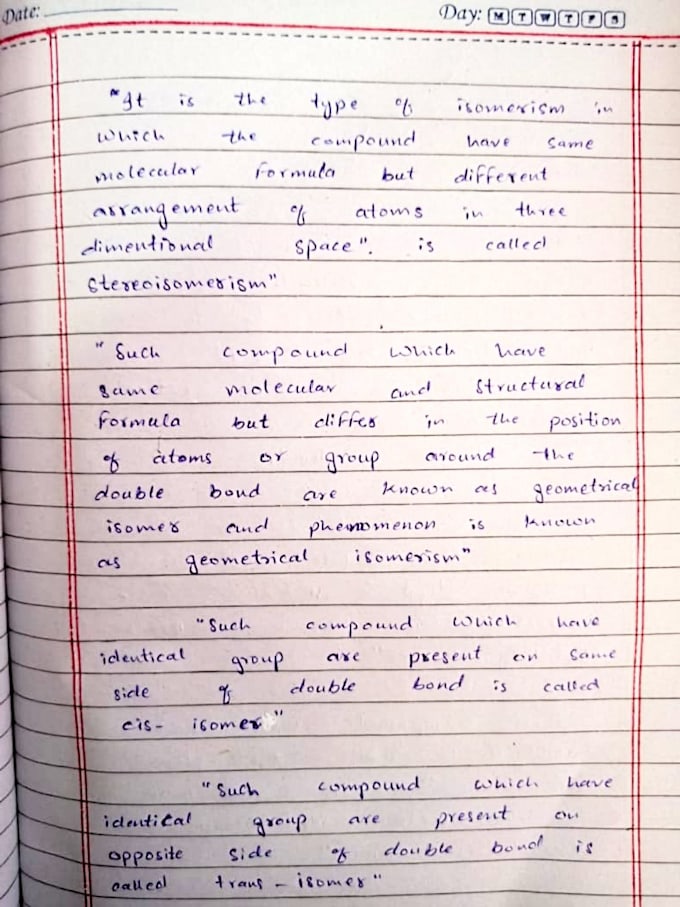 Date:
Day: M T W T F S
"It is the type of isomerism in
which the compound have same
molecular formula but different
arrangement of atoms in three
dimentional space". is called
stereoisomerism"
"Such compound which have
same molecular and structural
formula but differ in the position
of atoms or group around the
double bond are known as geometrical
isomer and phenomenon is known
as geometrical isomerism"
"Such compound which have
identical group are present on same
side of double bond is called
cis- isomer"
"Such compound which have
identical group are present on
opposite side of double bond is
called trans - isomer"